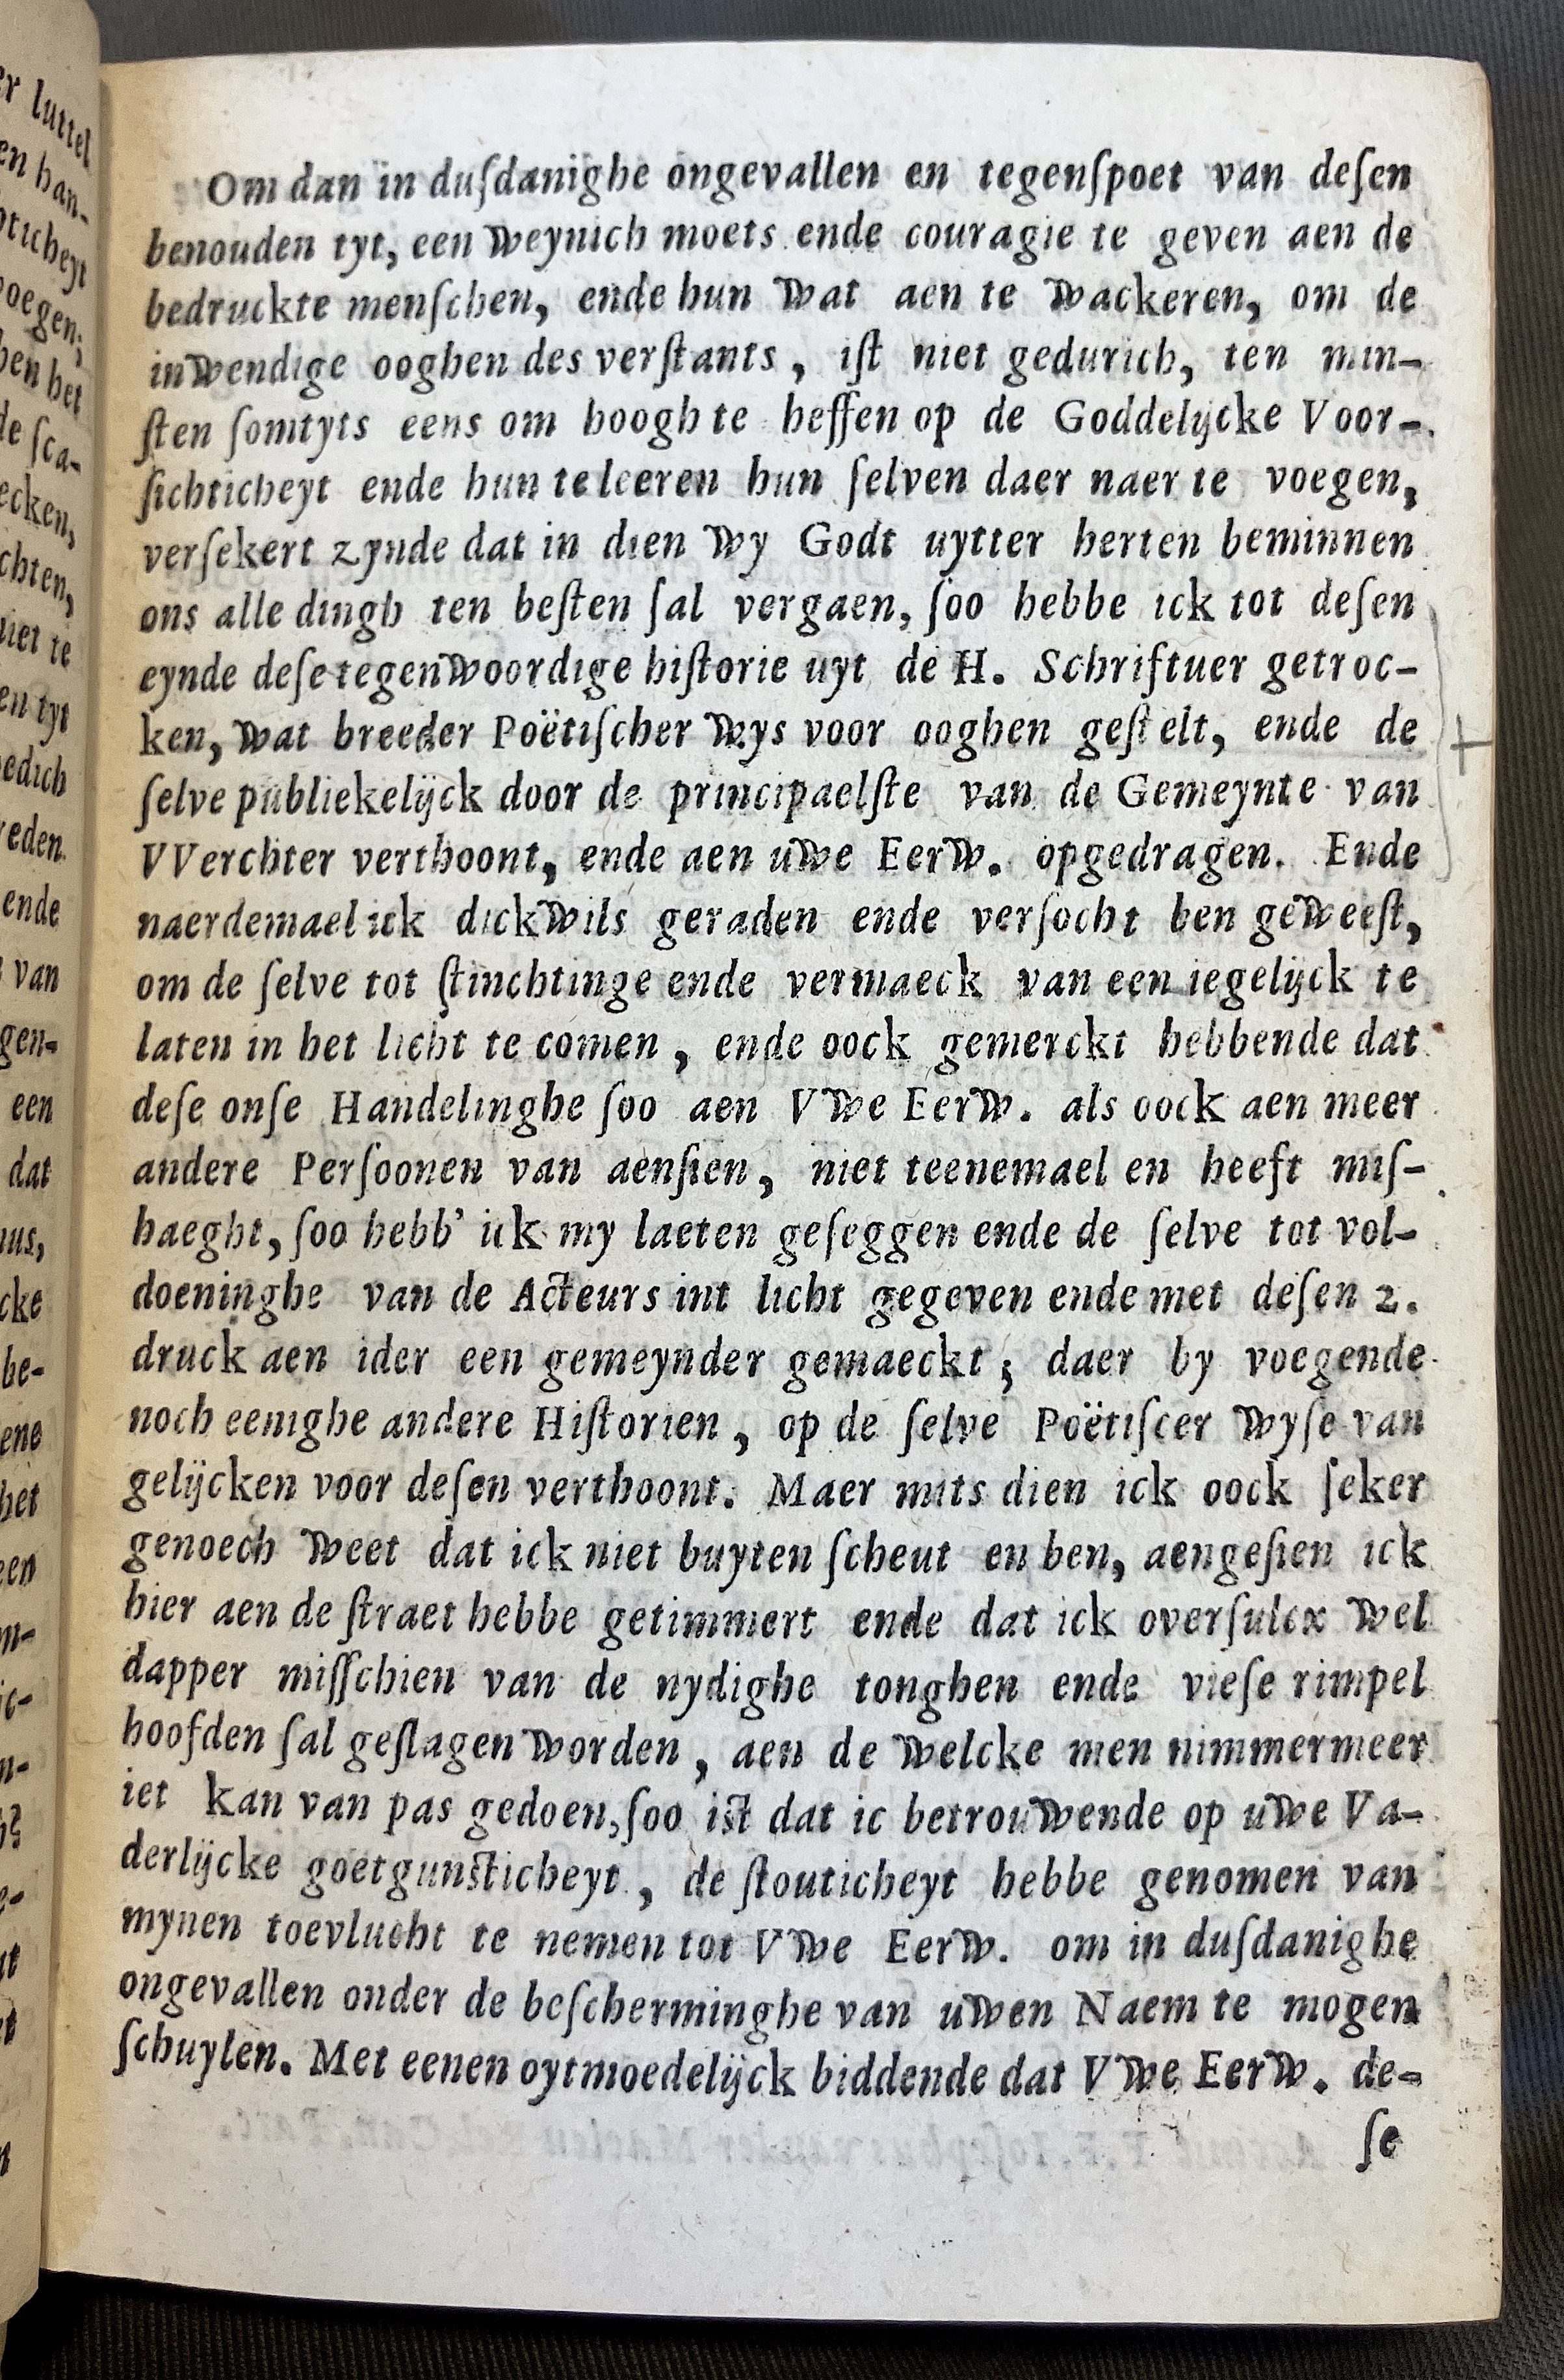 Om dan in duſdanighe ongevallen en tegenſpoet van deſen
benouden tyt, een weynich moets ende couragie te geven aen de
bedruckte menſchen, ende hun wat aen te wackeren, om de
inwendige ooghen des verſtants, iſt niet gedurich, ten min-
ſten ſomtyts eens om hoogh te heffen op de Goddelijcke Voor-
ſichticheyt ende hun te leeren hun ſelven daer naer te voegen,
verſekert zynde dat in dien wy Godt uytter herten beminnen
ons alle dingh ten beſten ſal vergaen, ſoo hebbe ick tot deſen
eynde deſe tegenwoordige hiſtorie uyt de H. Schriftuer getroc-
ken, wat breeder Poëtiſcher wys voor ooghen geſtelt, ende de
ſelve publiekelijck door de principaelſte van de Gemeynte van
VVerchter verthoont, ende aen uwe Eerw. opgedragen. Ende
naerdemael ick dickwils geraden ende verſocht ben geweeſt,
om de ſelve tot ſtinchtinge ende vermaeck van een iegelijck te
laten in het licht te comen, ende oock gemerckt hebbende dat
deſe onſe Handelinghe ſoo aen Vwe Eerw. als oock aen meer
andere Perſoonen van aenſien, niet teenemael en heeft miſ-
haeght, ſoo hebb' ick my laeten geſeggen ende de ſelve tot vol-
doeninghe van de Acteurs int licht gegeven ende met deſen 2.
druck aen ider een gemeynder gemaeckt; daer by voegende
noch eenighe andere Hiſtorien, op de ſelve Poëtiſcer wyſe van
gelijcken voor deſen verthoont. Maer mits dien ick oock ſeker
genoech weet dat ick niet buyten ſcheut en ben, aengeſien ick
hier aen de ſtraet hebbe getimmert ende dat ick overſulcx wel
dapper miſſchien van de nydighe tonghen ende vieſe rimpel
hoofden ſal geſlagen worden, aen de welcke men nimmermeer
iet kan van pas gedoen, ſoo iſt dat ic betrouwende op uwe Va-
derlijcke goetgunſticheyt, de ſtouticheyt hebbe genomen van
mynen toevlucht te nemen tot Vwe Eerw. om in duſdanighe
ongevallen onder de beſcherminghe van uwen Naem te mogen
ſchuylen. Met eenen oytmoedelijck biddende dat Vwe Eerw. de-
ſe